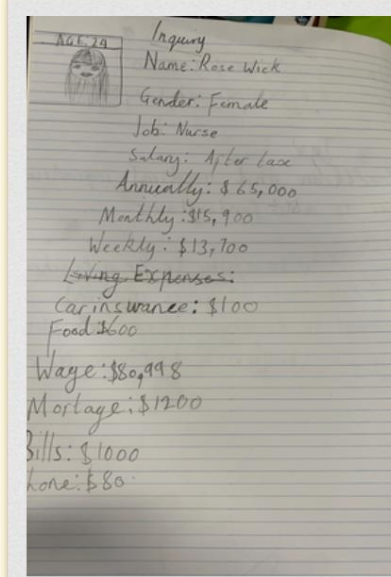 Inquiry
AGE 29
Name: Rose Wick
Gender: Female
Job: Nurse
Salary: After tax
Annually: $65,000
Monthly: $15,900
Weekly: $13,700
Living Expenses:
Car inswance: $100
Food $600
Wage: $80,998
Mortage: $1200
Bills: $1000
hone: $80